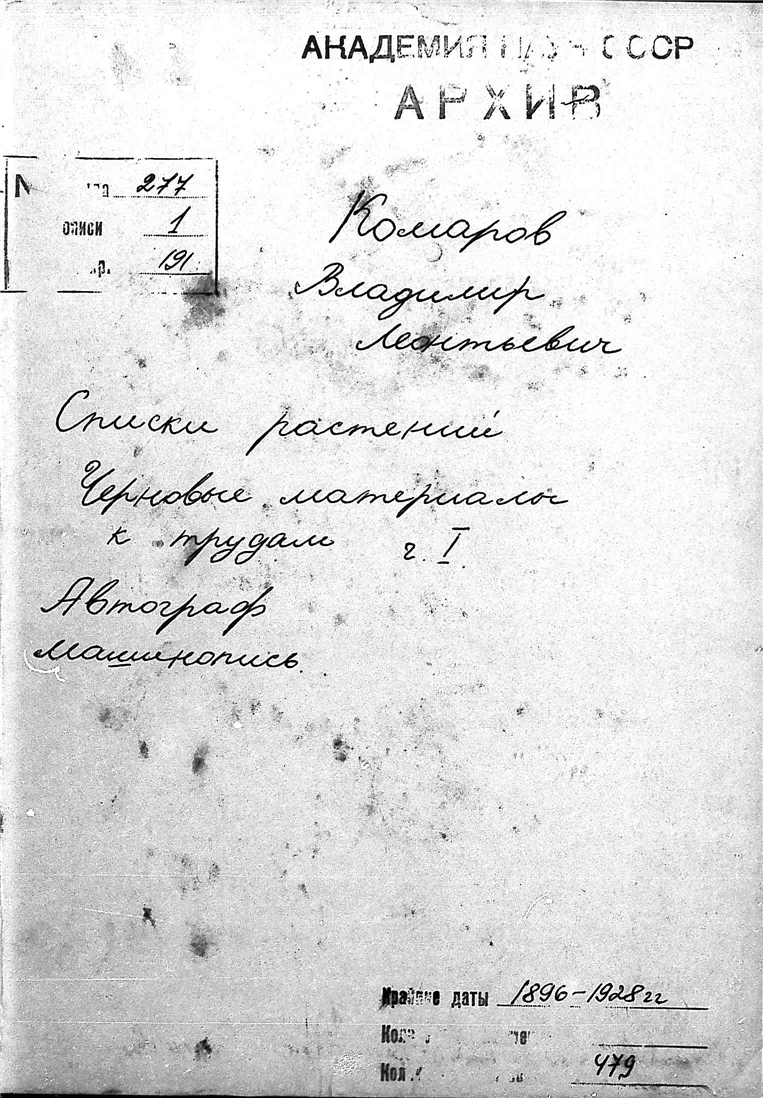 АКАДЕМИЯ НАУК СССР
АРХИВ
277
описи 1
191
Комаров
Владимир
Леонтьевич
Списки растений
Черновые материалы
к трудам ч. I.
Автограф
машинопись.
Крайние даты 1896-1928 гг
479